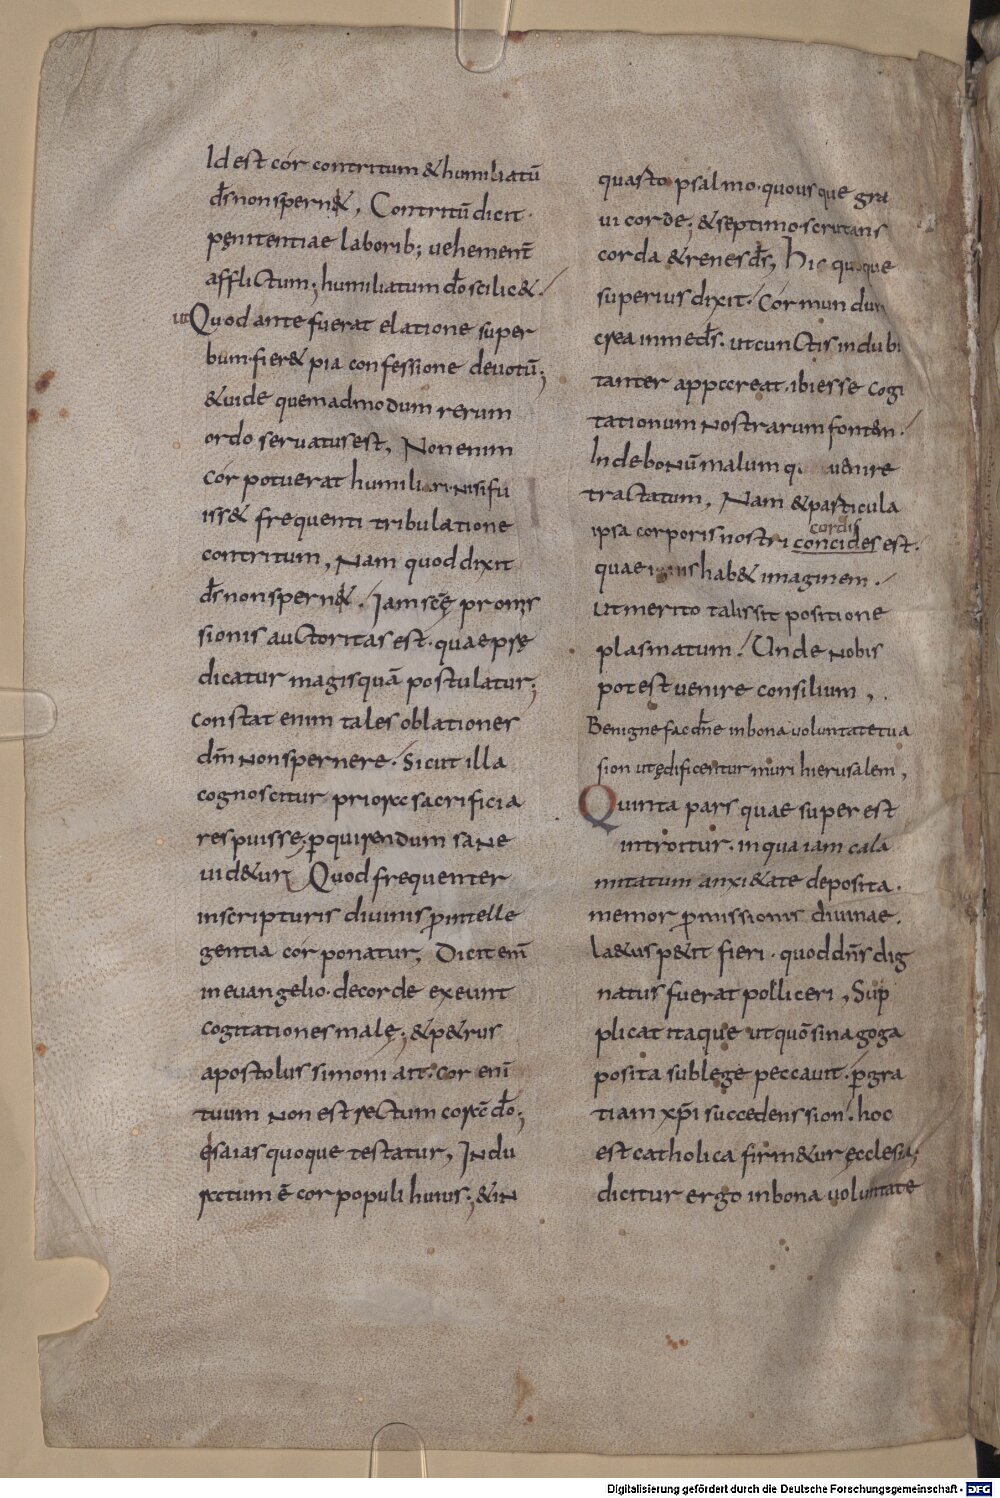 Id est cór contritum & humiliatū
d̄s non spern&, Contritū dicit.
pęnitentiae laborib; uehement̄
afflictum; humiliatum dō scilic&./
ut Quod ante fuerat elatione super
bum. fier& pia confessione deuotū;
& uide quemadmodum rerum
ordo seruatus est, Non enim
cór potuerat humiliari. nisi fu
iss& frequenti tribulatione
contritum, Nam quod dixit
d̄s non spern&./ Iam scę promis
sionis auctoritas est. quae prę
dicatur magis quā postulatur;
constat enim tales oblationes
dn̄m non spernere./ Sicut illa
cognoscitur priora sacrificia
respuisse; ꝑquirendum sane
uid&ur, Quod frequenter
in scripturis diuinis ꝓ intelle
gentia cor ponatur, Dicit enī
in euangelio. de corde exeunt
cogitationes malę; & p&rus
apostolus simoni ait. cor enī
tuum non est rectum corā dō;
esaias quoque testatur, Indu
ratum ē cor populi huius; & in
quarto psalmo. quousque gra
ui corde; & septimo. scrutans
corda & renes d̄s, Hic quoque
superius dixit./ Cor mundum
crea in me d̄s. ut cunctis indubi
tanter appareat. ibi esse cogi
tationum nostrarum fontem./
Inde bonū malum q. uenire
tractatum, Nam & particula
cordis
ipsa corporis nostri concides est.
quae ignis hab& imaginem./
ut merito talis sit positione
plasmatum./ Unde nobis
potest uenire consilium,.
Benigne fac dn̄e in bona uoluntate tua
sion ut ędificentur muri hierusalem,
Quinta pars quae superest
introitur. in qua iam cala
mitatum anxi&ate deposita.
memor ꝓmissionis diuinae.
la&us p&it fieri. quod dn̄s dig
natus fuerat polliceri, Sup
plicat itaque ut quō sinagoga
posita sub lege peccauit. ꝑ gra
tiam xp̄i succedens sion. hoc
est catholica firm&ur ęcclesia;
dicitur ergo in bona uoluntate
Digitalisierung gefördert durch die Deutsche Forschungsgemeinschaft - DFG